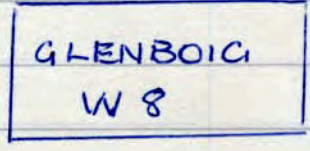 GLENBOIG
W 8